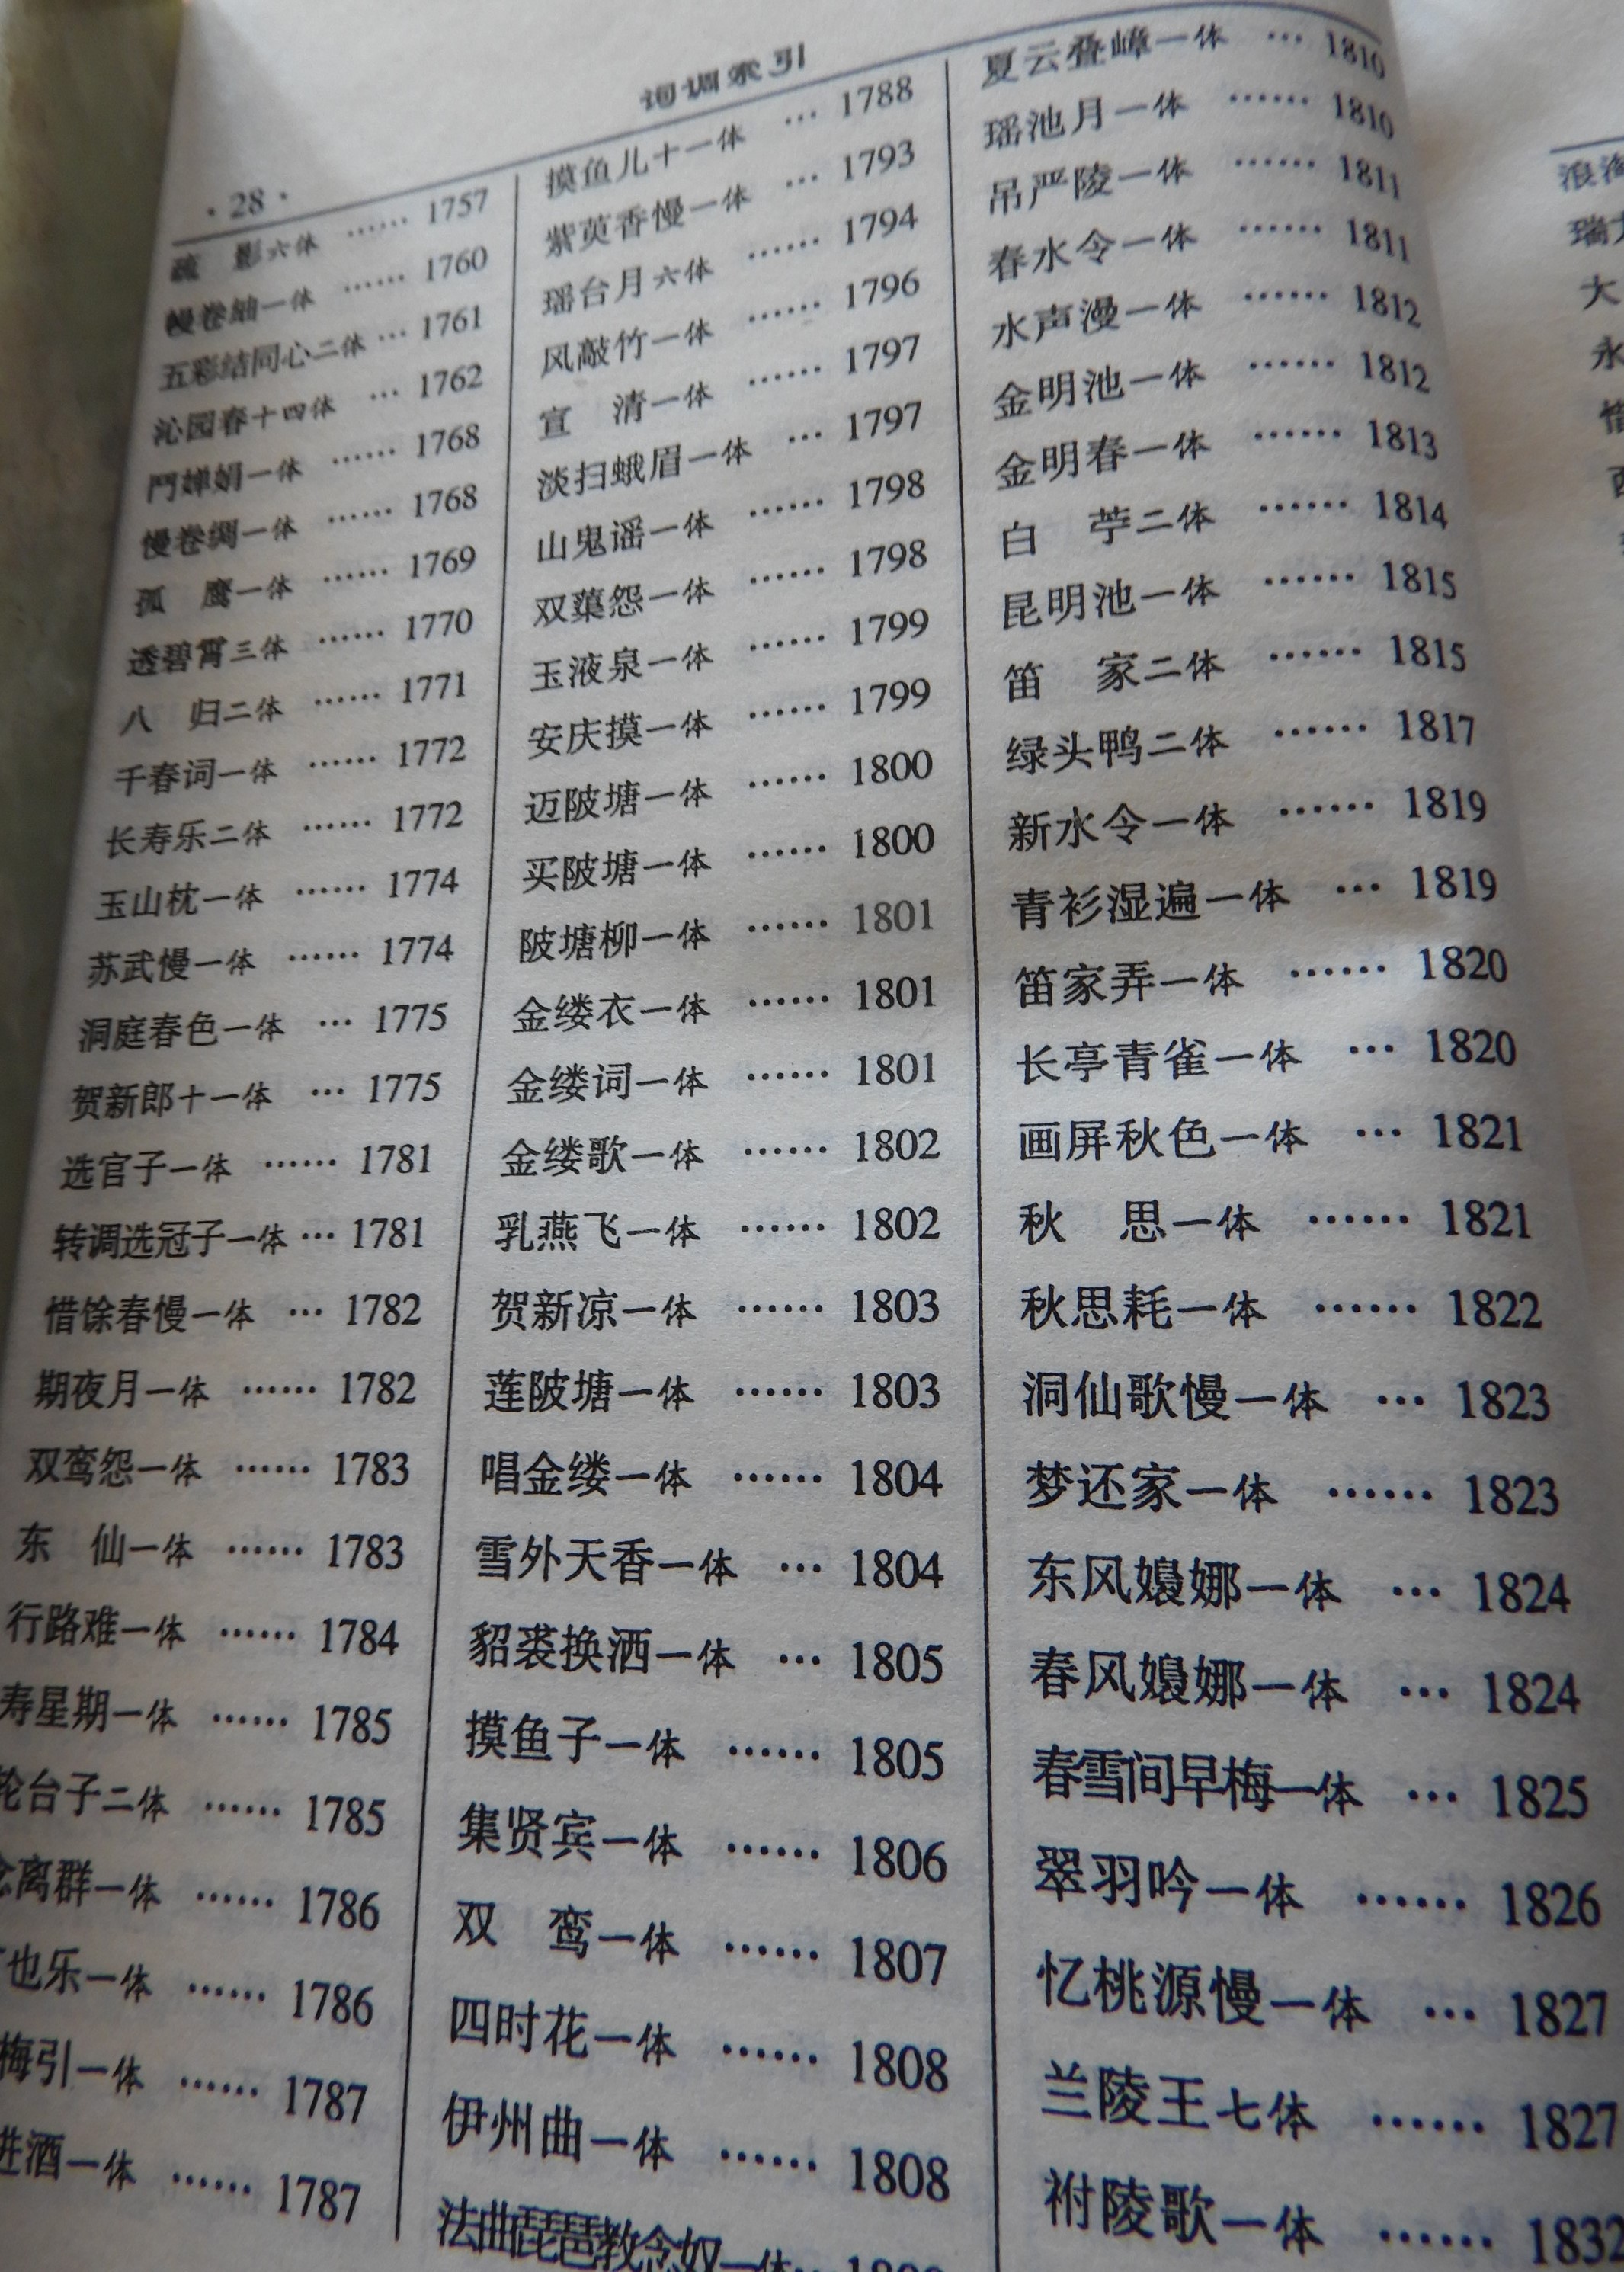 词调索引
·28·
疏　影六体 …… 1757
慢卷䌷一体 …… 1760
五彩结同心二体 … 1761
沁园春十四体 … 1762
鬥婵娟一体 …… 1768
慢卷绸一体 …… 1768
孤　鹰一体 …… 1769
透碧霄三体 …… 1770
八　归二体 …… 1771
千春词一体 …… 1772
长寿乐二体 …… 1772
玉山枕一体 …… 1774
苏武慢一体 …… 1774
洞庭春色一体 … 1775
贺新郎十一体 … 1775
选官子一体 …… 1781
转调选冠子一体 … 1781
惜馀春慢一体 … 1782
期夜月一体 …… 1782
双鸾怨一体 …… 1783
东　仙一体 …… 1783
行路难一体 …… 1784
寿星期一体 …… 1785
轮台子二体 …… 1785
离群一体 …… 1786
也乐一体 …… 1786
梅引一体 …… 1787
进酒一体 …… 1787
摸鱼儿十一体 … 1788
紫萸香慢一体 … 1793
瑶台月六体 …… 1794
风敲竹一体 …… 1796
宣　清一体 …… 1797
淡扫蛾眉一体 … 1797
山鬼谣一体 …… 1798
双蕖怨一体 …… 1798
玉液泉一体 …… 1799
安庆摸一体 …… 1799
迈陂塘一体 …… 1800
买陂塘一体 …… 1800
陂塘柳一体 …… 1801
金缕衣一体 …… 1801
金缕词一体 …… 1801
金缕歌一体 …… 1802
乳燕飞一体 …… 1802
贺新凉一体 …… 1803
莲陂塘一体 …… 1803
唱金缕一体 …… 1804
雪外天香一体 … 1804
貂裘换酒一体 … 1805
摸鱼子一体 …… 1805
集贤宾一体 …… 1806
双　鸾一体 …… 1807
四时花一体 …… 1808
伊州曲一体 …… 1808
法曲琵琶教念奴一体…
夏云叠嶂一体 … 1810
瑶池月一体 …… 1810
吊严陵一体 …… 1811
春水令一体 …… 1811
水声漫一体 …… 1812
金明池一体 …… 1812
金明春一体 …… 1813
白　苧二体 …… 1814
昆明池一体 …… 1815
笛　家二体 …… 1815
绿头鸭二体 …… 1817
新水令一体 …… 1819
青衫湿遍一体 … 1819
笛家弄一体 …… 1820
长亭青雀一体 … 1820
画屏秋色一体 … 1821
秋　思一体 …… 1821
秋思耗一体 …… 1822
洞仙歌慢一体 … 1823
梦还家一体 …… 1823
东风嬝娜一体 … 1824
春风嬝娜一体 … 1824
春雪间早梅一体 … 1825
翠羽吟一体 …… 1826
忆桃源慢一体 … 1827
兰陵王七体 …… 1827
祔陵歌一体 …… 1832
浪淘
瑞
大
永
惜
西